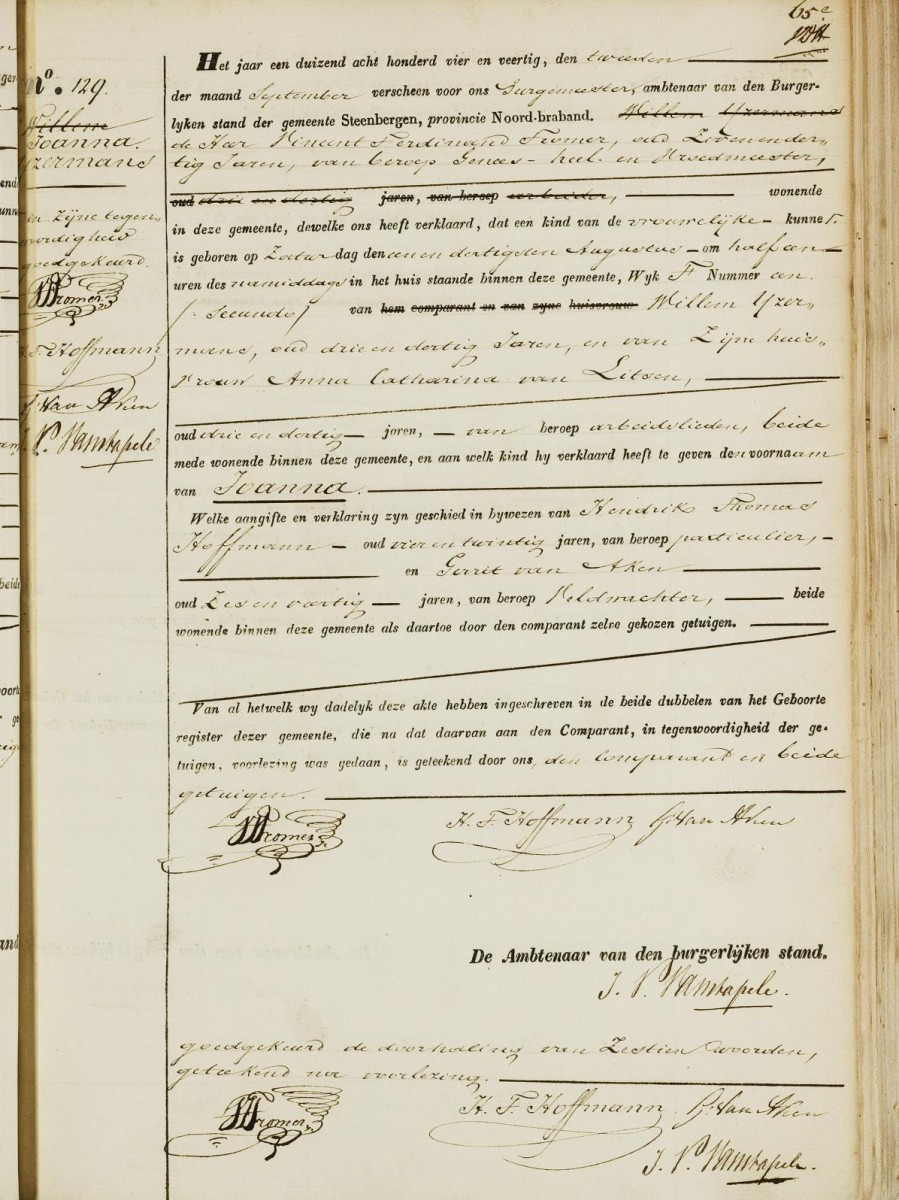 65e
No. 129.
Willem
Joanna.
Yzermans
in zyne tegen„
woordigheid
goedgekeurd.
Tromer
H. T. Hoffmann
G: Van Aken
J. V. Vanstapele
Het jaar een duizend acht honderd vier en veertig, den tweeden
der maand September verscheen voor ons Burgemeester, ambtenaar van den Burger-
lyken stand der gemeente Steenbergen, provincie Noord-braband. Willem Yzermans
de Heer Vincent Ferdinand Tromer, oud Zevenender„
tig Jaren, van beroep Genees- heel- en Vroedmeester,
oud drie en dertig jaren, van beroep arbeider, wonende
in deze gemeente, dewelke ons heeft verklaard, dat een kind van de vrouwelijke kunne
is geboren op Zaturdag den een en dertigsten Augustus om half een
uren des namiddags in het huis staande binnen deze gemeente, Wyk F Nummer een
/. Secundo/ van hem comparant en van zyne huisvrouw Willem Yzer„
mans, oud drie en dertig Jaren, en van Zijne huis„
vrouw Anna Catharina van Litsen,
oud drie en dertig jaren, van beroep arbeidslieden, beide
mede wonende binnen deze gemeente, en aan welk kind hy verklaard heeft te geven den voornaam
van Joanna.
Welke aangifte en verklaring zyn geschied in bywezen van Hendrik Thomas
Hoffmann oud vier en twintig jaren, van beroep particulier,
en Gerrit van Aken
oud Zes en veertig jaren, van beroep Veldwachter, beide
wonende binnen deze gemeente als daartoe door den comparant zelve gekozen getuigen.
Van al hetwelk wy dadelyk deze akte hebben ingeschreven in de beide dubbelen van het Geboorte
register dezer gemeente, die na dat daarvan aan den Comparant, in tegenwoordigheid der ge-
tuigen, voorlezing was gedaan, is geteekend door ons, den Comparant en beide
getuigen.
Tromer H. T. Hoffmann G: Van Aken
De Ambtenaar van den burgerlijken stand.
J. V. Vanstapele.
goedgekeurd de doorhaling van Zestien woorden,
getekend na voorlezing.
Tromer H. T. Hoffmann G: Van Aken
J. V. Vanstapele.